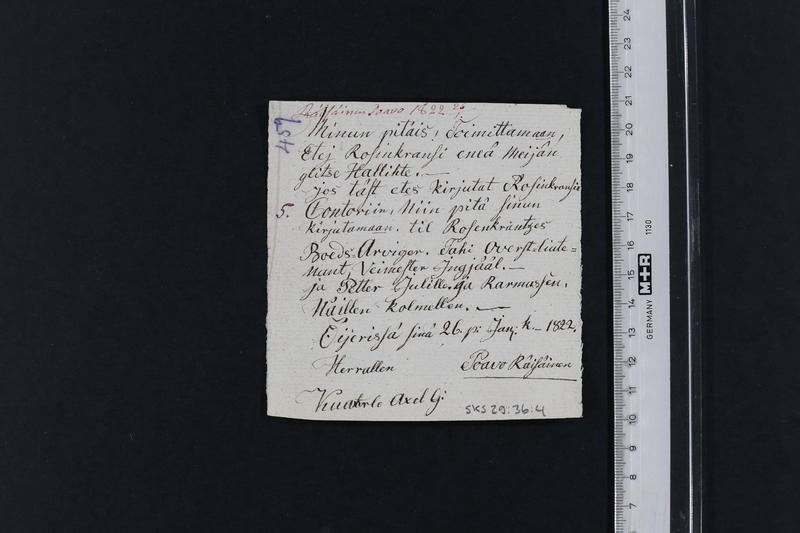 Räisäinen Poavo 1822 26/1
459
Minun pitäis, Toimittamaan,
Etej Rosinkransi eneä Meijän
glitse Hallihte. —
Jos täst etes Kirjutat Rosinkransin
5. Contoriin, Niin pitä sinun
Kirjutamaan. til Rosenkrántzes
Boeds. Arviger. Tahi Overst. liute=
nant, Veimester Ingjääl. —
ja Petter Julille. ja Rarmussen.
Näillen Kolmellen. —
Eijerissä sinä 26. p: Janj. k. — 1822.
Herrallen Poavo Räisäinen
Axel G:
SKS 29:36:4
24
23
22
21
20
19
18
17
16
15
14
13
12
11
10
9
8
7
GERMANY M+R 1130